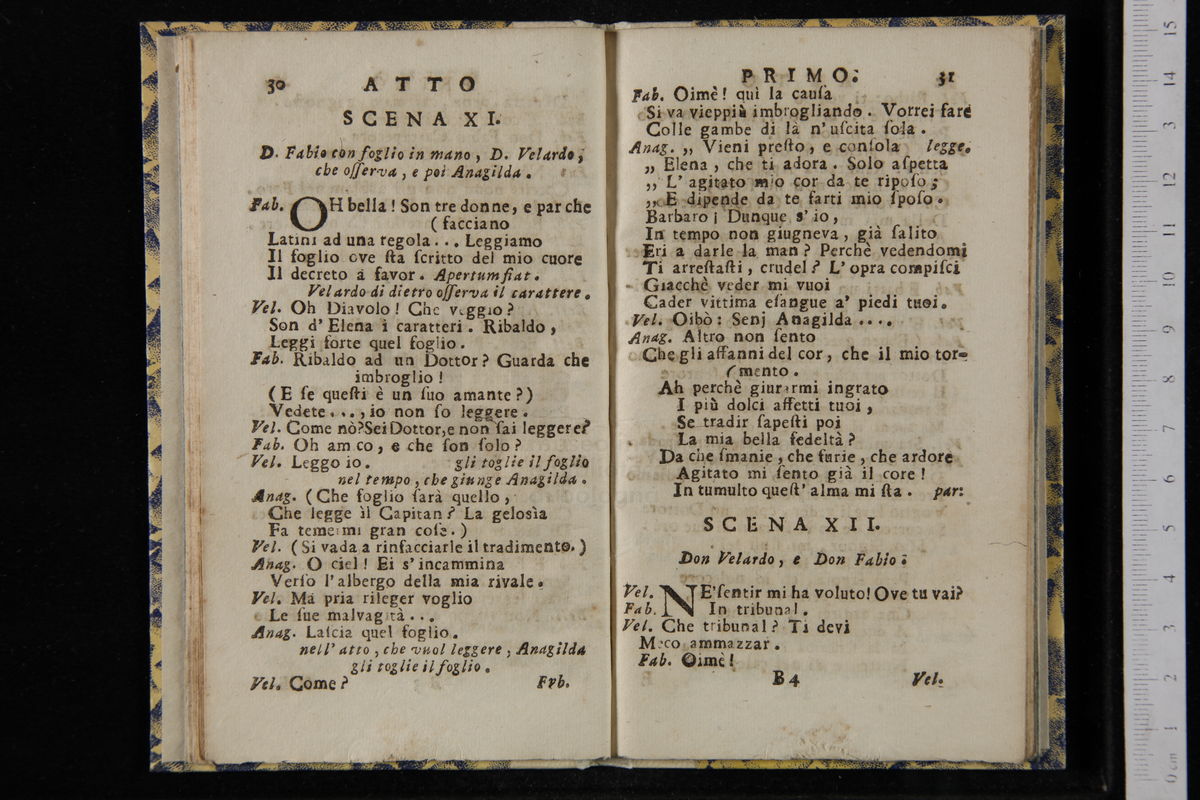 30 ATTO
SCENA XI.
D. Fabio con foglio in mano, D. Velardo,
che oſſerva, e poi Anagilda.
Fab. OH bella! Son tre donne, e par che
(facciano
Latini ad una regola... Leggiamo
Il foglio ove ſta ſcritto del mio cuore
Il decreto a favor. Apertum fiat.
Velardo di dietro oſſerva il carattere.
Vel. Oh Diavolo! Che veggio?
Son d' Elena i caratteri. Ribaldo,
Leggi forte quel foglio.
Fab. Ribaldo ad un Dottor? Guarda che
imbroglio!
(E ſe queſti è un ſuo amante?)
Vedete..., io non ſo leggere.
Vel. Come nò? Sei Dottor, e non ſai leggere?
Fab. Oh am co, e che ſon ſolo?
Vel. Leggo io. gli toglie il foglio
nel tempo, che giunge Anagilda.
Anag. (Che foglio ſarà quello,
Che legge il Capitan? La gelosìa
Fa temermi gran coſe.)
Vel. (Si vada a rinfacciarle il tradimento.)
Anag. O ciel! Ei s' incammina
Verſo l' albergo della mia rivale.
Vel. Ma pria rileger voglio
Le ſue malvagità...
Anag. Laſcia quel foglio.
nell' atto, che vuol leggere, Anagilda
gli toglie il foglio.
Vel. Come? Fvb.
PRIMO. 31
Fab. Oimè! quì la cauſa
Si va vieppiù imbrogliando. Vorrei fare
Colle gambe di là n' uſcita ſola.
Anag. „ Vieni preſto, e conſola legge.
„ Elena, che ti adora. Solo aſpetta
„ L' agitato mio cor da te ripoſo;
„ E dipende da te farti mio ſpoſo.
Barbaro! Dunque s' io,
In tempo non giugneva, già ſalito
Eri a darle la man? Perchè vedendomi
Ti arreſtaſti, crudel? L' opra compiſci
Giacchè veder mi vuoi
Cader vittima eſangue a' piedi tuoi.
Vel. Oibò: Senj Anagilda....
Anag. Altro non ſento
Che gli affanni del cor, che il mio tor-
(mento.
Ah perchè giurarmi ingrato
I più dolci affetti tuoi,
Se tradir ſapeſti poi
La mia bella fedeltà?
Da che ſmanie, che furie, che ardore
Agitato mi ſento già il core!
In tumulto queſt' alma mi ſta. par:
SCENA XII.
Don Velardo, e Don Fabio.
Vel. NE' ſentir mi ha voluto! Ove tu vai?
Fab. In tribunal.
Vel. Che tribunal? Ti devi
Meco ammazzar.
Fab. Oimè!
B 4 Vel.